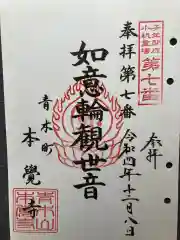 第七番
奉拝第七番 令和四年十二月八日
奉拝
如意輪観世音
青木町
本覺寺